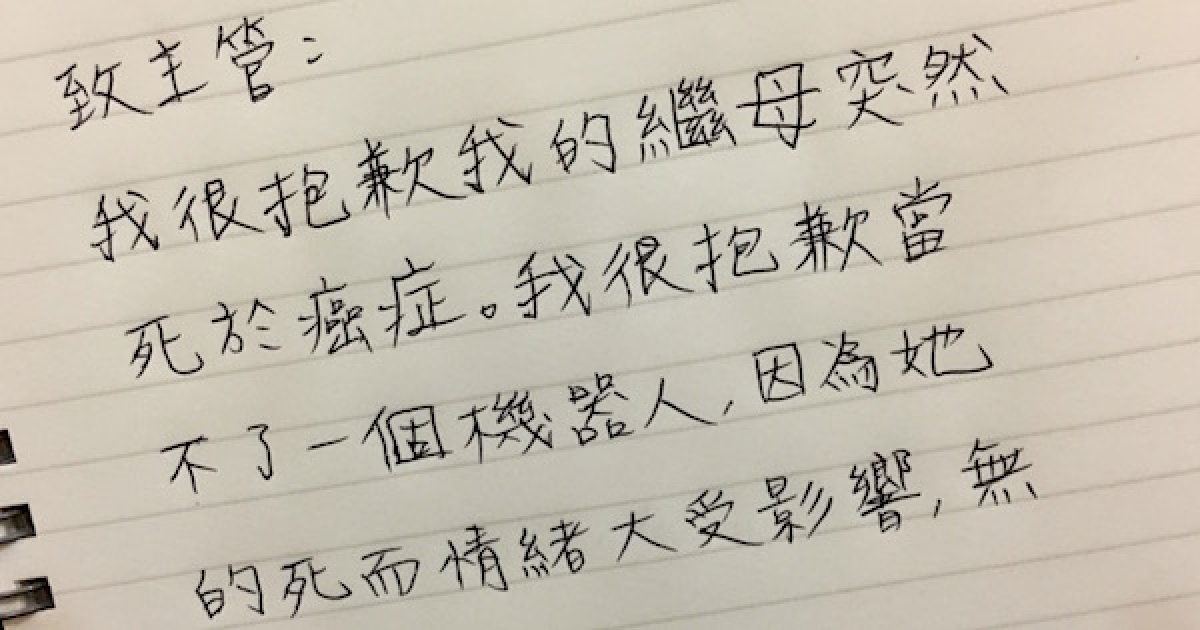 致主管：
我很抱歉我的繼母突然
死於癌症。我很抱歉當
不了一個機器人，因為她
的死而情緒大受影響，無